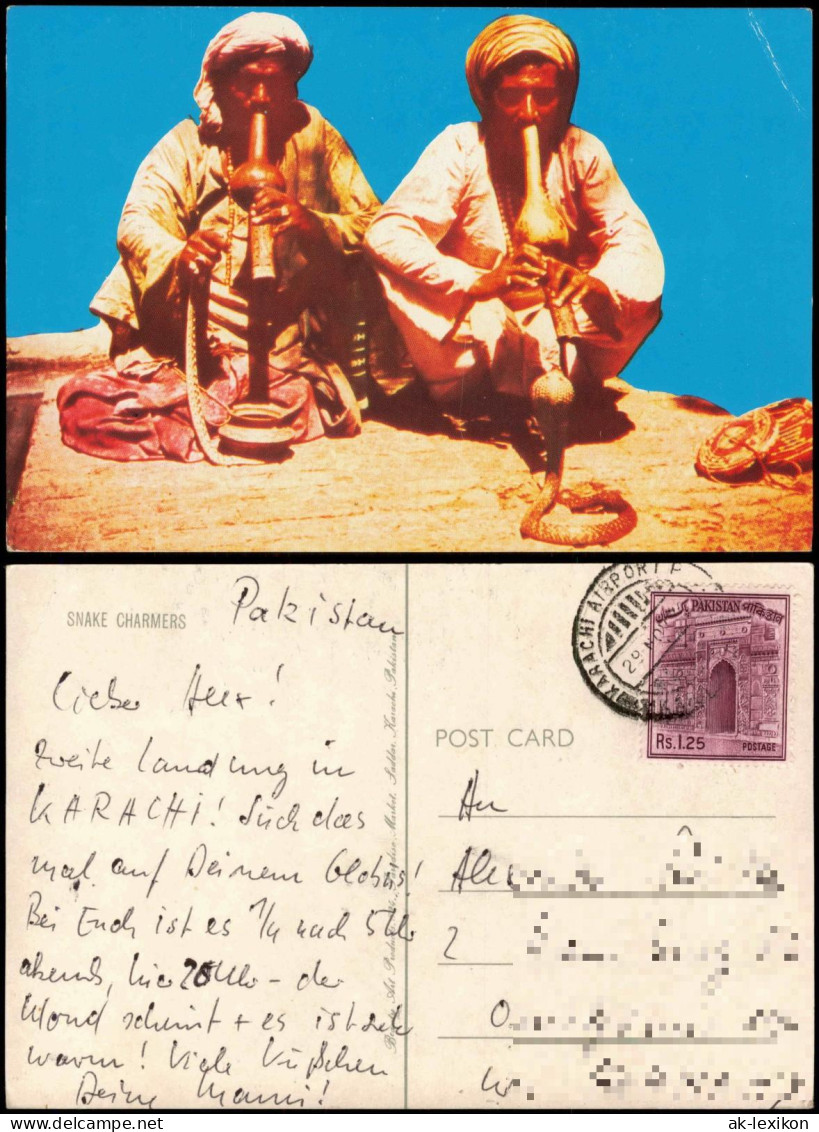 SNAKE CHARMERS
Pakistan
Lieber Alex!
zweite Landung in
KARACHI! Such das
mal auf Deinem Globus!
Bei Euch ist es 1/4 nach 5 Uhr
abends, hier Uhr - der
Mond scheint + es ist sehr
warm! Viele Küßchen
Deine Mami!
Market, Saddar, Karachi, Pakistan
KARACHI AIRPORT
PAKISTAN পাকিস্তান
Rs.1.25 POSTAGE
POST CARD
An
Alex
2
O
W
ak-lexikon